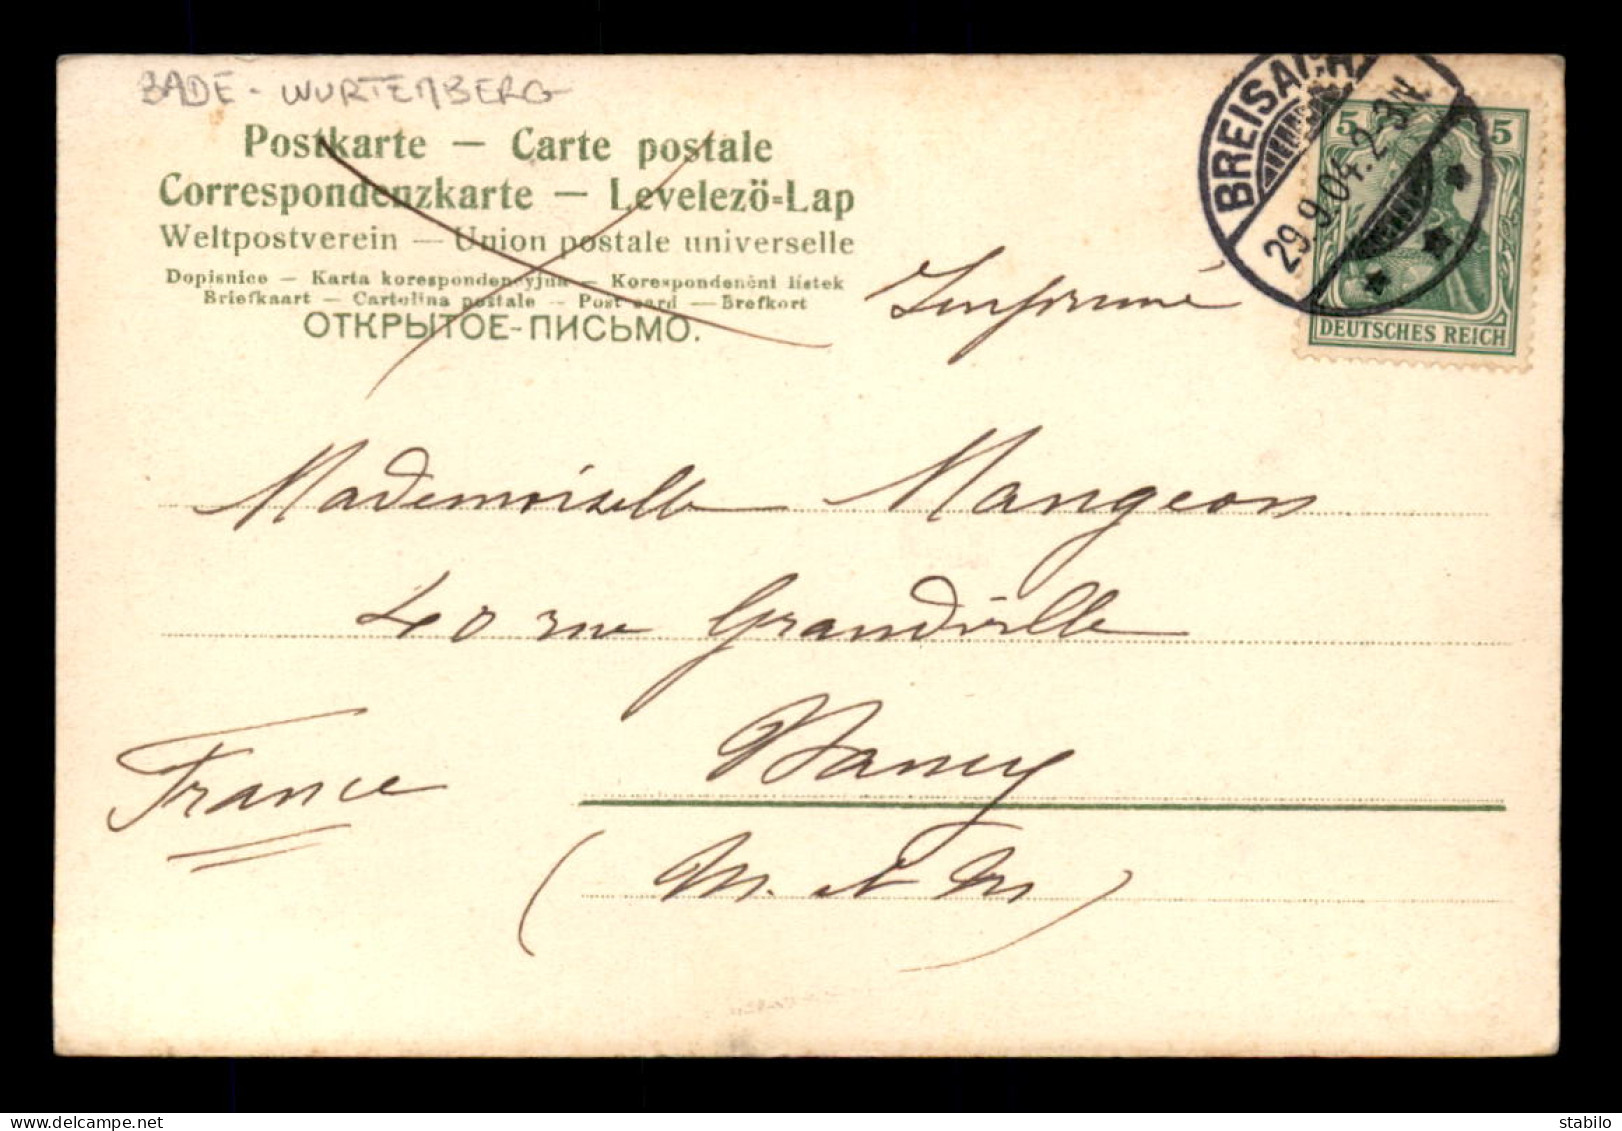 BADE - WURTEMBERG
Postkarte — Carte postale
Correspondenzkarte — Levelező-Lap
Weltpostverein — Union postale universelle
Dopisnice — Karta korespondencyjna — Korespondenční lístek
Briefkaart — Cartolina postale — Post card — Brefkort
ОТКРЫТОЕ-ПИСЬМО.
Imprimé
BREISACH
29.9.04. 2-3N.
5 5
DEUTSCHES REICH
Mademoiselle Mangeon
40 rue Grandville
Nancy
France
(M. et M)
stabilo